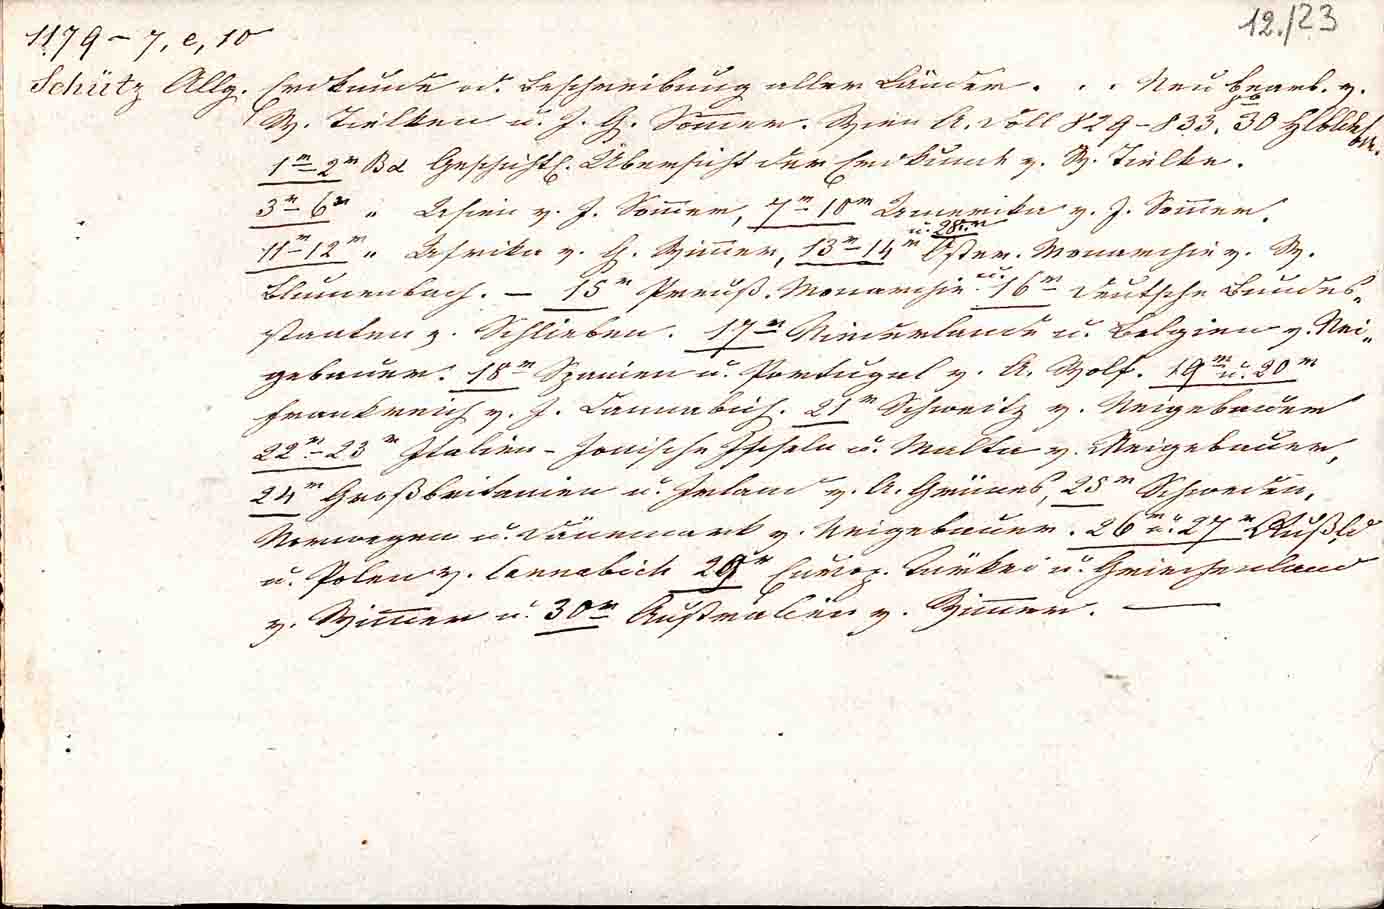 12./23
1179 - 7, e, 10
Schütz Allg. Erdkunde od. Beschreibung aller Länder . . . Neu bearb. v.
W. Tielken u. J. G. Som̅er. Wien A. Doll 829-833. 30 Hblds
1n-2n Bd Geschichtl. Übersicht der Erdkunde v. W. Tielke.
3n-6n „ Asien v. J. Som̅er, 7n-10n Amerika v. J. Som̅er.
11n-12n „ Afrika v. G. Wim̅er, 13n-14n u. 28n Öster. Monarchie v. W.
Blumenbach. - 15n Preuß. Monarchie u. 16n Deutsche Bundes-
staaten v. Schlieben. 17n Niederlande u. Belgien v. Nei-
gebauer. 18n Spanien u. Portugal v. A. Wolf. 19n u. 20n
Frankreich v. J. Cannabich. 21n Schweitz v. Neigebauer
22n-23n Italien - Jonische Inseln u. Malta v. Neigebauer,
24n Großbritanien u. Irland v. A. Grünes, 25n Schweden,
Norwegen u. Dänemark v. Neigebauer. 26n u. 27n Rußld
u. Polen v. Cannabich 29n Europ. Türkei u. Griechenland
v. Wim̅er u. 30n Australien v. Wim̅er. —